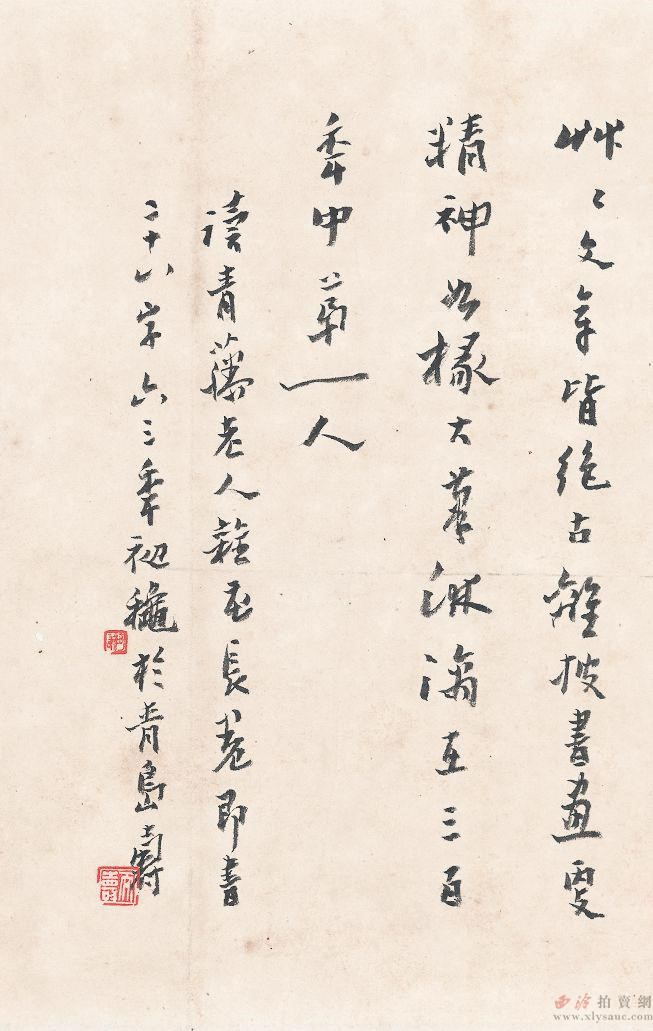 艸〻文章皆絕古離披書畫更
精神如椽大筆淋漓在三百
秊中苐一人
讀青藤老人雜花長卷即書
二十八字六三秊初龝於青島壽
西泠拍賣網
www.xlysauc.com